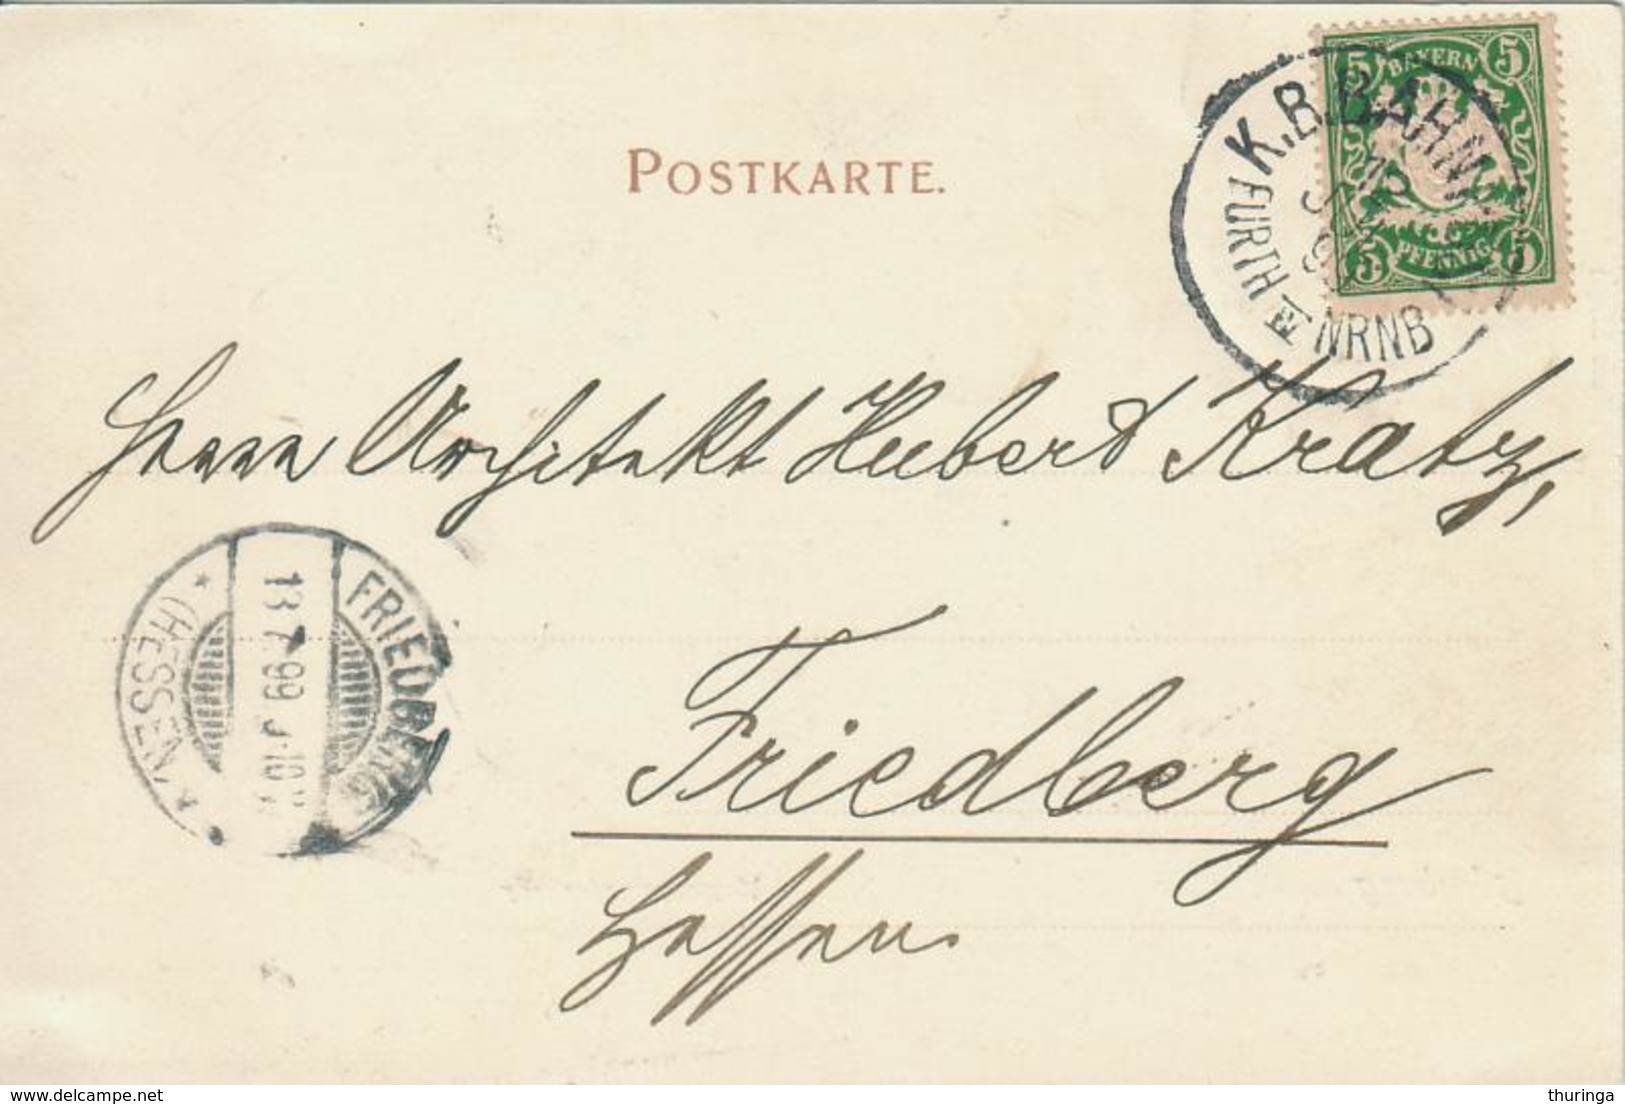 POSTKARTE.
5 BAYERN 5
5 PFENNIG 5
K.B.BAHNP
12
FURTH I/W NRNB
Herrn Architekt Hubert Kratz,
FRIEDBERG
13.7.99
(HESSEN)
Friedberg
Hessen.
www.delcampe.net
thuringa